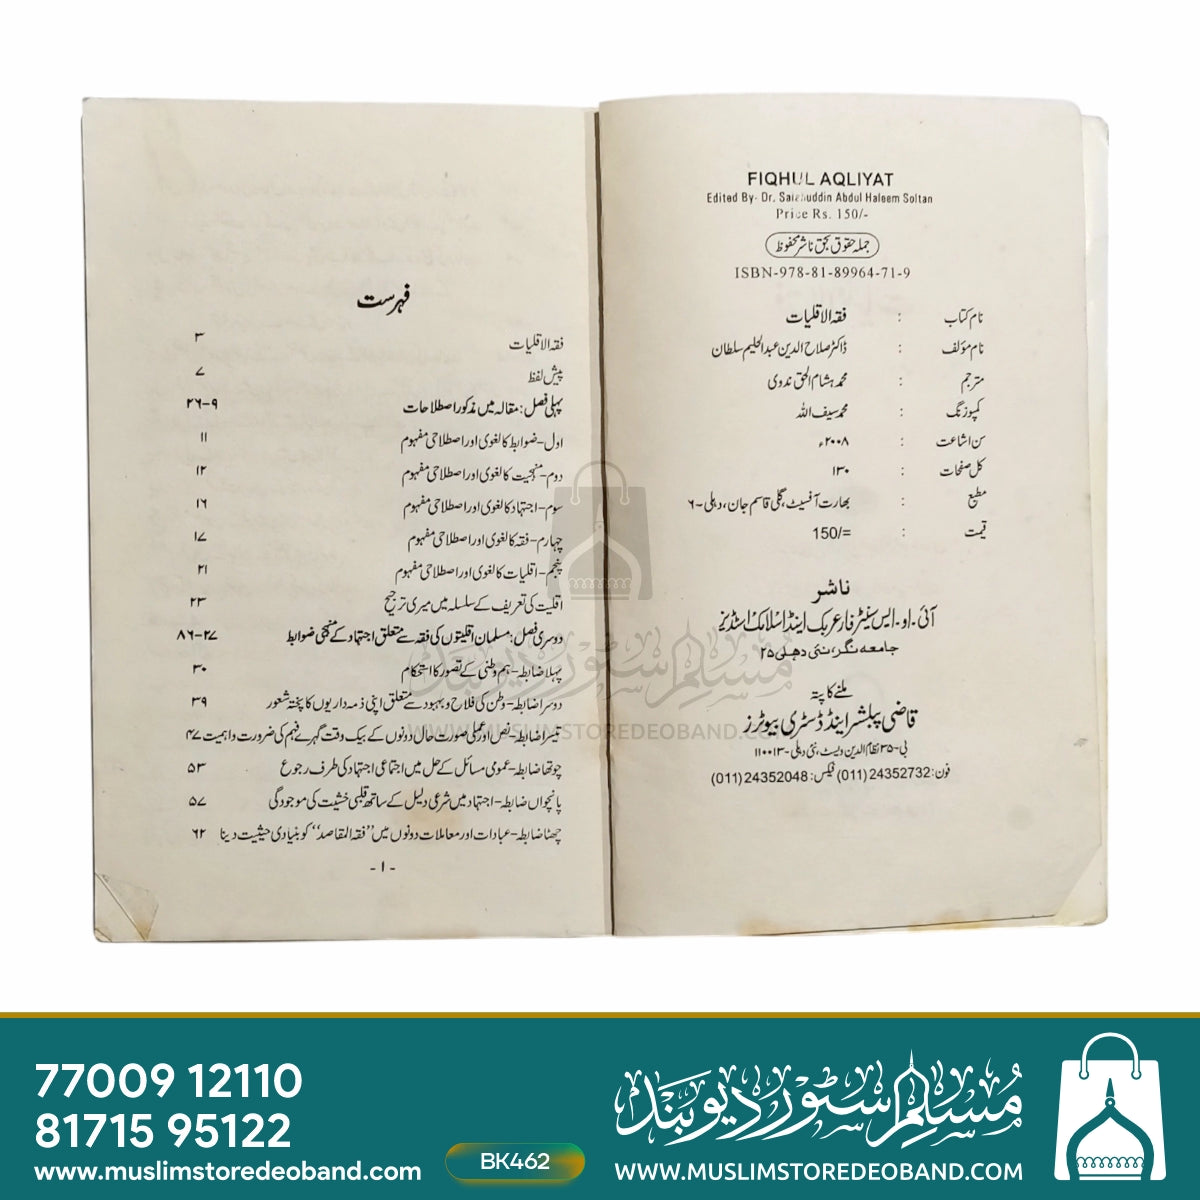 FIQHUL AQLIYAT
Edited By- Dr. Salahuddin Abdul Haleem Soltan
Price Rs. 150/-
جملہ حقوق بحق ناشر محفوظ
ISBN-978-81-89964-71-9
نام کتاب : فقہ الاقلیات
نام مؤلف : ڈاکٹر صلاح الدین عبدالحلیم سلطان
مترجم : محمد ہشام الحق ندوی
کمپوزنگ : محمد سیف اللہ
سن اشاعت : ۲۰۰۸ء
کل صفحات : ۱۳۰
مطبع : بھارت آفسیٹ، گلی قاسم جان، دہلی-۶
قیمت : 150/=
ناشر
آئی۔او۔ایس سینٹر فار عربک اینڈ اسلامک اسٹڈیز
جامعہ نگر، نئی دہلی ۲۵
ملنے کا پتہ
قاضی پبلشر اینڈ ڈسٹری بیوٹرز
بی-۳۵ نظام الدین ویسٹ، نئی دہلی-۱۱۰۰۱۳
فون: 24352732 (011) فیکس: 24352048 (011)
فہرست
فقہ الاقلیات ۳
پیش لفظ ۷
پہلی فصل: مقالہ میں مذکور اصطلاحات ۹-۲۶
اول- ضوابط کا لغوی اور اصطلاحی مفہوم ۱۱
دوم- منہجیت کا لغوی اور اصطلاحی مفہوم ۱۲
سوم- اجتہاد کا لغوی اور اصطلاحی مفہوم ۱۶
چہارم- فقہ کا لغوی اور اصطلاحی مفہوم ۱۷
پنجم- اقلیات کا لغوی اور اصطلاحی مفہوم ۲۱
اقلیت کی تعریف کے سلسلہ میں میری ترجیح ۲۳
دوسری فصل: مسلمان اقلیتوں کی فقہ سے متعلق اجتہاد کے منہجی ضوابط ۲۷-۸۶
پہلا ضابطہ- ہم وطنی کے تصور کا استحکام ۳۰
دوسرا ضابطہ- وطن کی فلاح و بہبود سے متعلق اپنی ذمہ داریوں کا پختہ شعور ۳۹
تیسرا ضابطہ- نص اور عملی صورت حال دونوں کے بیک وقت گہرے فہم کی ضرورت و اہمیت ۴۷
چوتھا ضابطہ- عمومی مسائل کے حل میں اجتماعی اجتہاد کی طرف رجوع ۵۳
پانچواں ضابطہ- اجتہاد میں شرعی دلیل کے ساتھ قلبی خشیت کی موجودگی ۵۷
چھٹا ضابطہ- عبادات اور معاملات دونوں میں "فقہ المقاصد" کو بنیادی حیثیت دینا ۶۲
-۱-
مسلم سٹور دیوبند
WWW.MUSLIMSTOREDEOBAND.COM
77009 12110
81715 95122
www.muslimstoredeoband.com
BK462
مسلم سٹور دیوبند
WWW.MUSLIMSTOREDEOBAND.COM